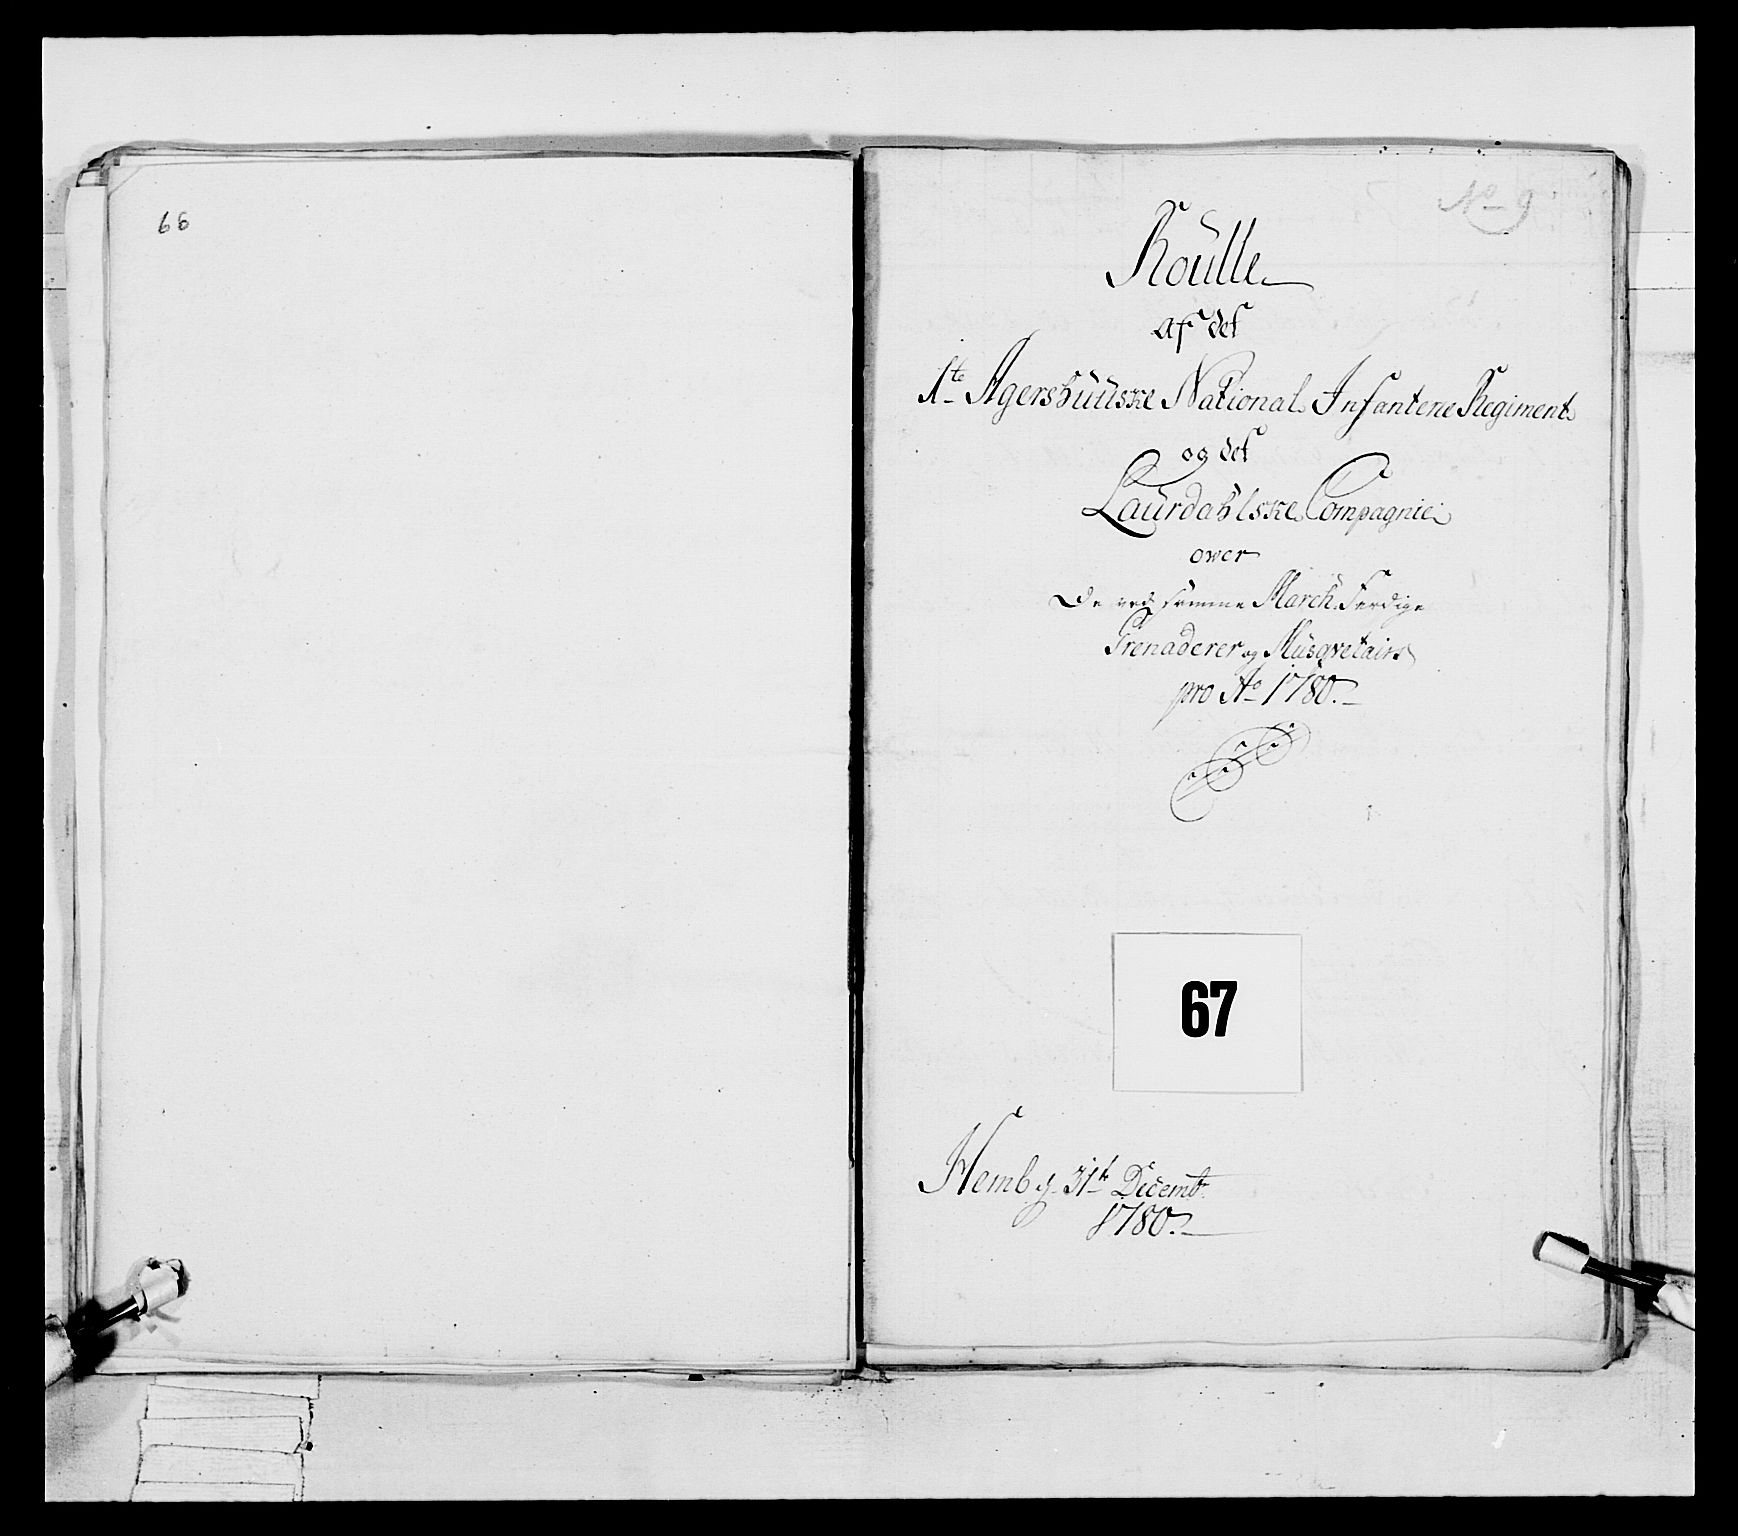 68
No 9
Roulle
af det
1te Agershuuske National Infanterie Regiment
og det
Laurdahlske Compagnie
over
De ved samme March Ferdige
Grenaderer og Musqvetairs
pro Ao 1780.
67
Hemb g. 31te Decembr
1780.